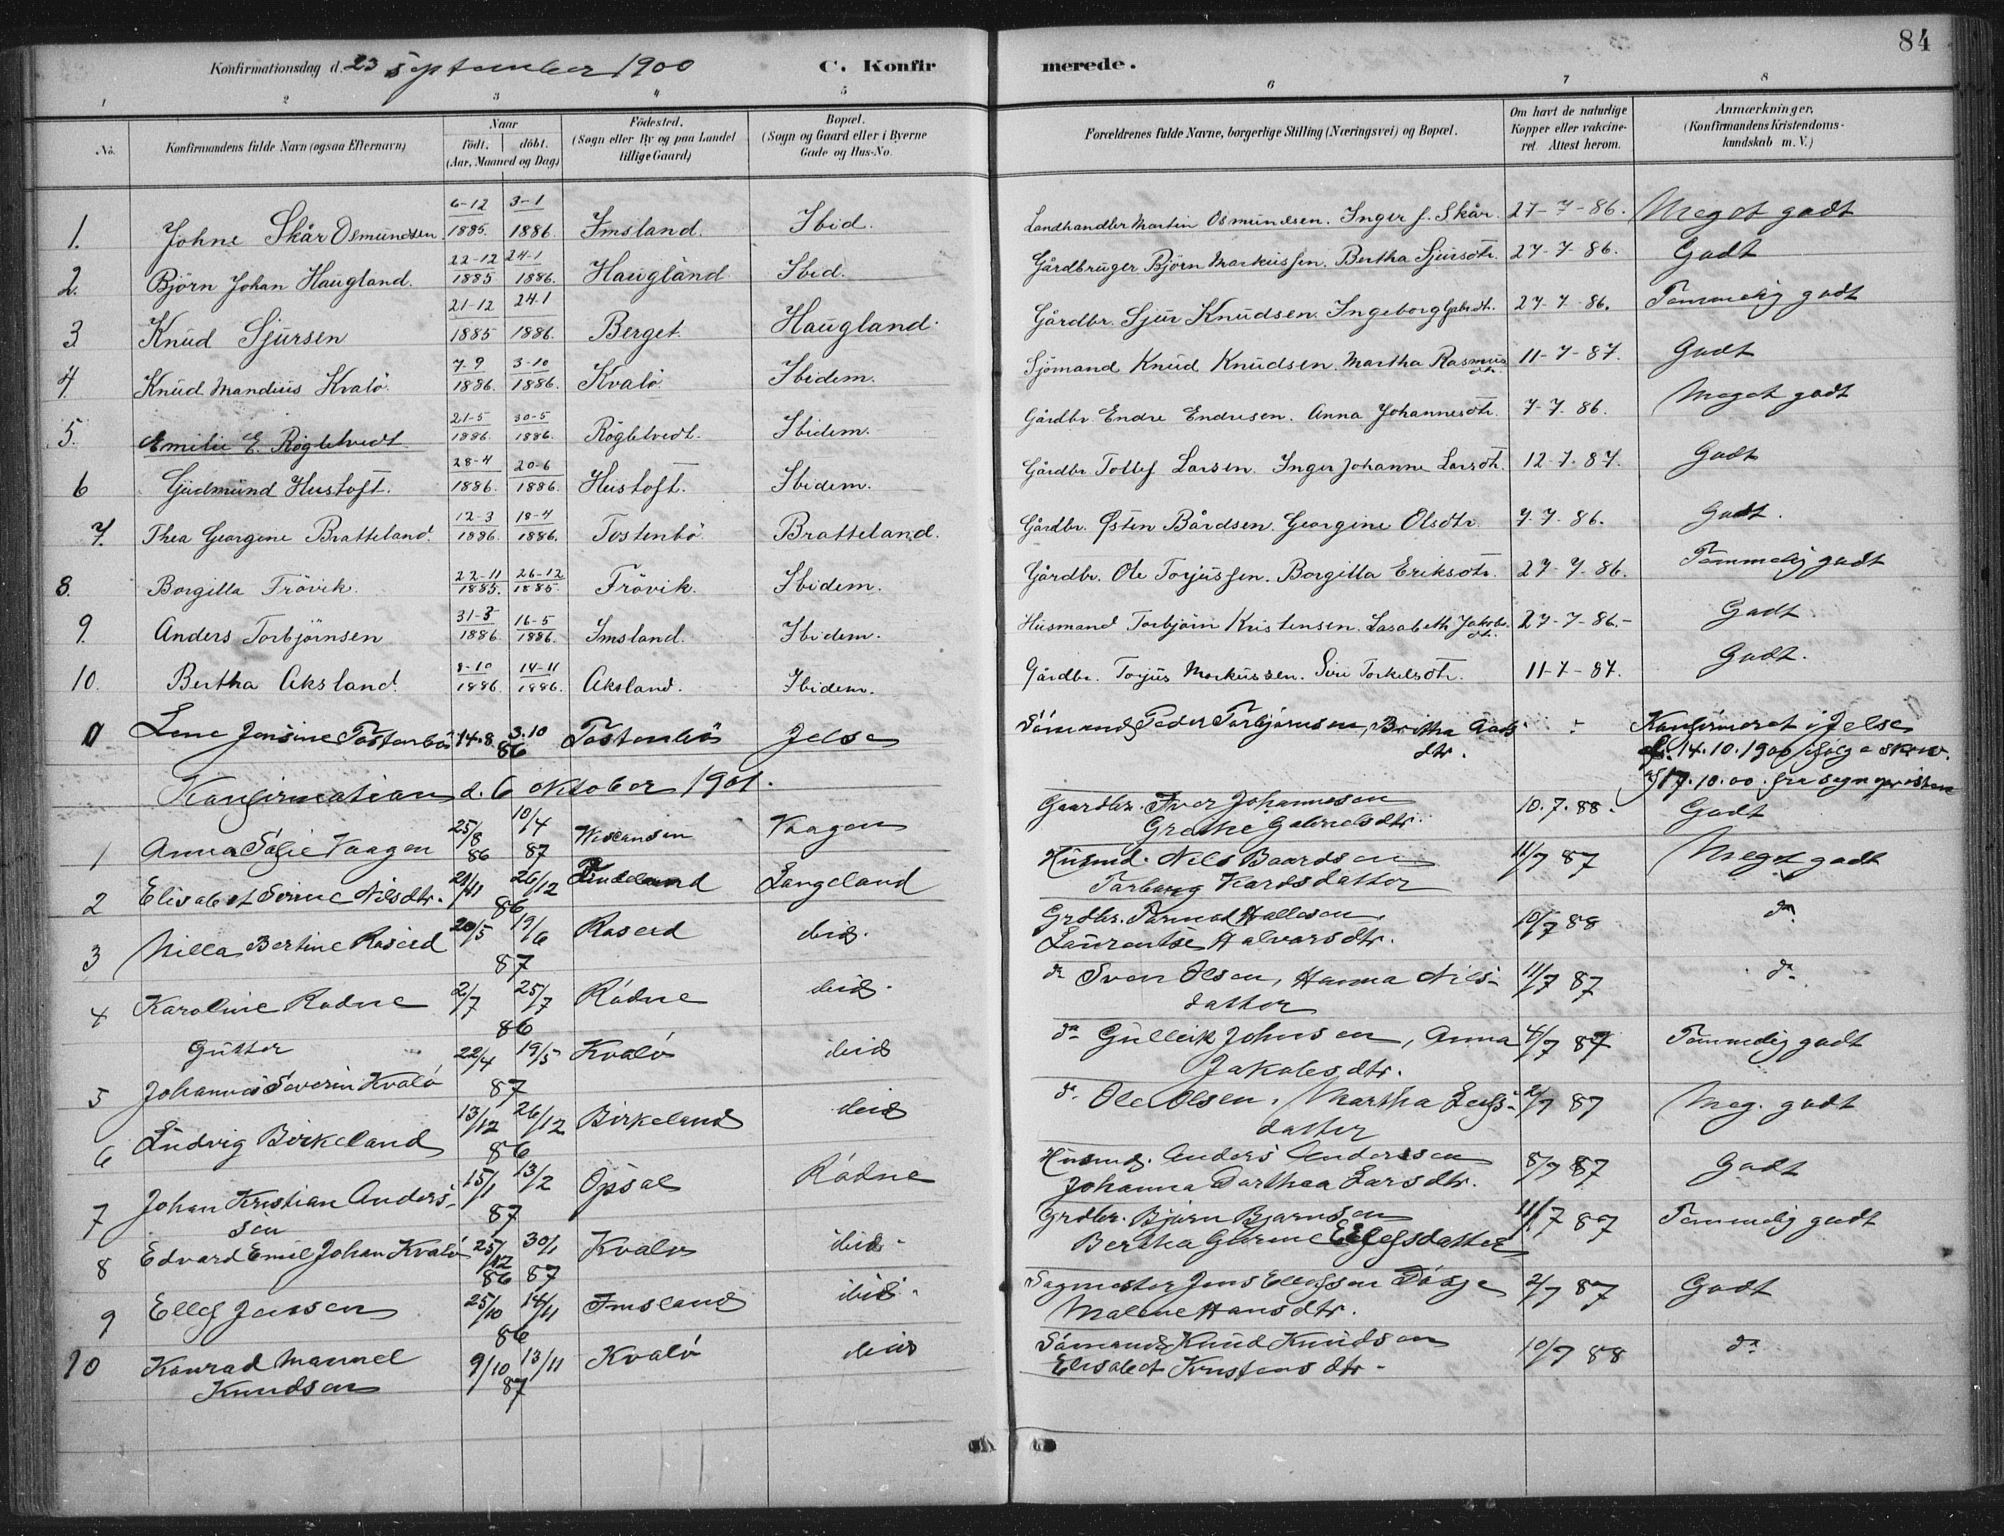 84
Konfirmationsdag d. 23 September 1900 C. Konfirmerede.
1 2 3 4 5 6 7 8
No. Konfirmandens fulde Navn (ogsaa Efternavn) Naar födt. döbt. (Aar, Maaned og Dag) Födested. (Sogn eller By og paa Landet tillige Gaard) Bopæl. (Sogn og Gaard eller i Byerne Gade og Hus-No. Forældrenes fulde Navne, borgerlige Stilling (Næringsvei) og Bopæl. Om havt de naturlige Kopper eller vakcineret. Attest herom. Anmærkninger. (Konfirmandens Kristendomskundskab m. V.)
1. Johne Skår Osmundsen 6-12 1885. 3-1 1886 Imsland. Ibid. Landhandler Martin Osmundsen. Inger f. Skår. 27-7-86. Meget godt
2. Björn Johan Haugland. 22-12 1885 24-1 1886. Haugland Ibid. Gårdbruger Björn Markussen. Bertha Sjursdtr. 27-7-86. Godt
3 Knud Sjursen 21-12 1885 24.1 1886. Berget. Haugland. Gårdbr. Sjur Knudsen. Ingeborg 27-7-86. Temmelig godt
4. Knud Mandius Kvalö. 7-9 1886. 3-10 1886. Kvalö. Ibidem. Sjömand Knud Knudsen. Martha Rasmusdtr. 11-7-87. Godt
5. Emilie E. Rögletvedt 21-5 1886. 30-5 1886. Rögletvedt. Ibidem. Gårdbr. Endre Endresen. Anna Johannesdtr. 7-7.86. Meget godt
6 Gudmund Hustoft. 28-4 1886. 20-6 1886. Hustoft. Ibidem. Gårdbr. Tollef Larsen. Inger Johanne Larsdtr. 12-7-87. Godt
7. Thea Georgine Bratteland. 12-3 1886. 18-4 1886. Tostenbö Bratteland. Gårdbr. Østen Bårdsen. Georgine Olsdtr. 7-7.86. Godt.
8. Borgilla Trövik. 22-11 1885. 26-12 1885. Trövik. Ibidem. Gårdbr. Ole Torjussen. Borgilla Eriksdtr. 27-7-86. Temmelig godt
9. Anders Torbjörnsen 31-3 1886 16-5 1886. Imsland. Ibidem. Husmand Torbjörn Kristensen. Lisabeth Jakobsdtr. 27-7-86.- Godt.
10. Bertha Aksland. 8-10 1886. 14-11 1886. Aksland. Ibidem. Gårdbr. Torjus Markussen. Siri Torkelsdtr. 11-7-87. Godt.
Lene Jensine Tostenbö 14.8. 3.10 86 Tostenbö Jelse Sömand Peder Torbjörnsen, Britha dtr. Konfirmeret i Jelse d. 14.10.1900 ifølge skriv. af 17.10.00. fra sognepresten
Konfirmation d. 6 oktober 1901.
1 Anna Sofie Vaagen 25/8 86 10/4 87 Vaagen Gaardbr. Iver Johannesen Grethe Gabrielsdtr. 10.7.88. Godt
2 Elisabet Serine Nilsdtr. 21/11 26/12 86 Langeland Husmd. Nils Baardsen Torborg datter 11/7 87 Meget godt
3 Nilla Bertine 20/5 19/6 87 ibid. Grdbr. Tormod Laurentse Halvorsdtr. 10/7 88 do
4 Karoline Rödne 2/7 25/7 86 Rödne ibid. do Sven Olsen, Hanna Nilsdatter 11/7 87 do
5 Gutter Johannes Severin Kvalö 22/4 19/5 87 Kvalö ibid do Gulleik Johnsen, Anna Jakobsdtr. 4/7 87 Temmelig godt
6 Ludvig Birkeland 13/12 26/12 86 Birkeland ibid do Ole Olsen, Martha datter 2/7 87 Meg. godt
7 Johan Kristian Anderssen 15/1 13/2 87 Opsal Rödne Husmd. Anders Anderssen Johanna Dorthea Larsdtr. 8/7 87 Godt
8 Edvard Emil Johan Kvalö 25/12 86 30/1 87 Kvalö ibid. Grdbr. Björn Bjørnsen Bertha Gurine datter 11/7 87 Temmelig godt
9 Ellef Jensen 25/10 14/11 86 Imsland ibid. Sagmester Jens Ellefsen Malene Hansdtr. 2/7 87 Godt
10 Konrad Manuel Knudsen 9/10 13/11 87 Kvalö ibid Sömand Knud Knudsen Elisabet Kristensdtr. 10/7 88 do